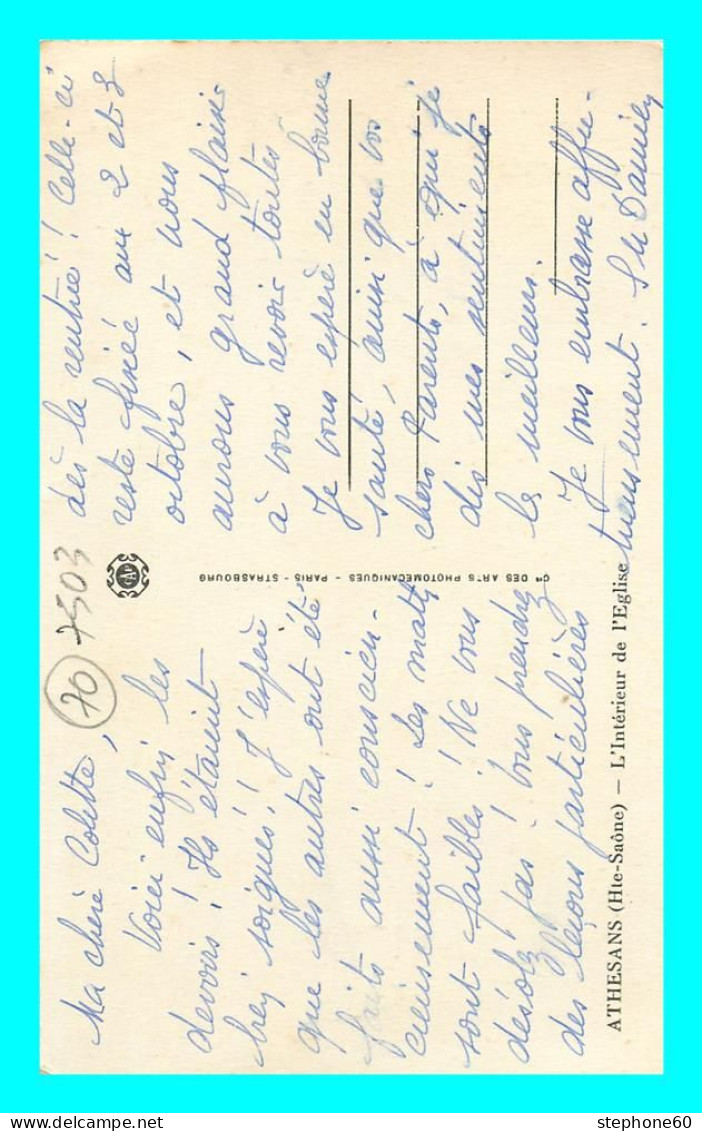 Ma chère Colette,
Voici enfin les
devoirs ! Ils étaient
bien soignés ! J'espère
que les autres ont été
faits aussi conscien-
cieusement ! Les math
sont faibles ! Ne vous
désolez pas ! Vous prendrez
des leçons particulières
dès la rentrée ! Celle-ci
reste fixée aux 2 et 3
octobre, et nous
aurons grand plaisir
à vous revoir toutes
Je vous espère en bonne
santé, ainsi que vos
chers Parents, à qui je
dis mes sentiments
les meilleurs.
Je vous embrasse affec-
tueusement. Sr
70 7503
CAP
Cie DES ARTS PHOTOMECANIQUES - PARIS - STRASBOURG
ATHESANS (Hte-Saône) — L'Intérieur de l'Eglise
stephone60